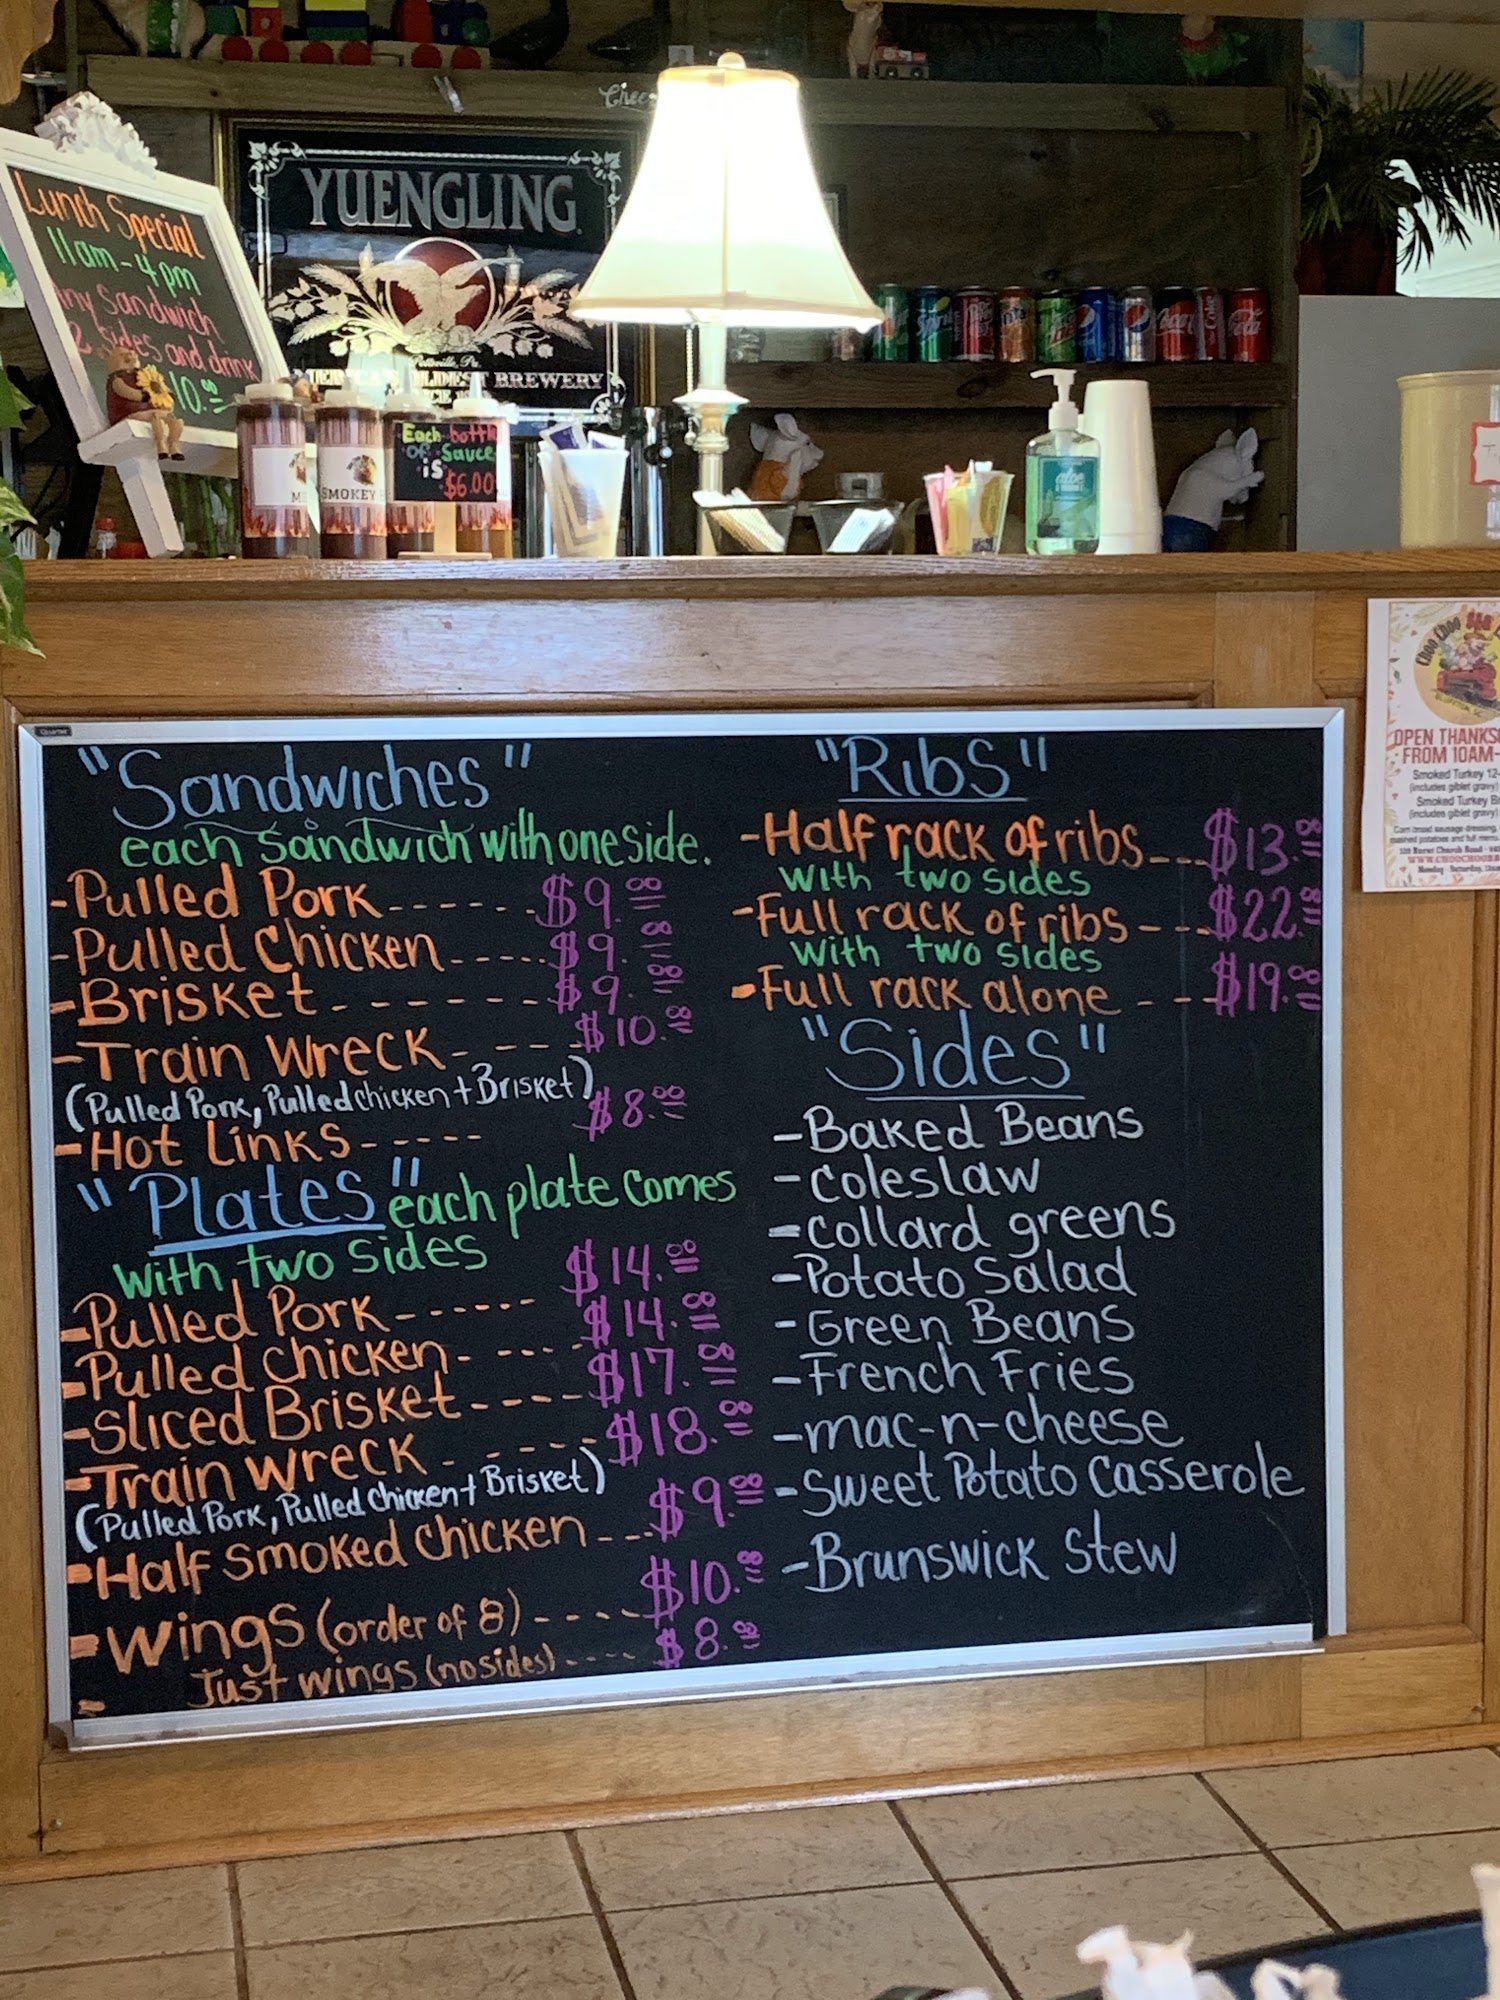 Lunch Special
11am-4pm
Sandwich
2 sides and drink
10.00
YUENGLING
Pottsville, Pa.
OLDEST BREWERY
Each bottle
of Sauce
is
$6.00
SMOKEY
aloe
Sprite
"Sandwiches"
each Sandwich with one side.
-Pulled Pork------ $9.00
-Pulled Chicken----- $9.00
-Brisket------ $9.00
-Train Wreck---- $10.00
(Pulled Pork, Pulled chicken + Brisket)
-Hot Links----- $8.00
"Plates" each plate comes
with two sides
-Pulled Pork------ $14.00
-Pulled Chicken----- $14.00
-Sliced Brisket---- $17.00
-Train wreck----- $18.00
(Pulled Pork, Pulled Chicken + Brisket)
-Half smoked chicken--- $9.00
-Wings (order of 8)---- $10.00
- Just wings (no sides)---- $8.00
"Ribs"
-Half rack of ribs---$13.00
with two sides
-Full rack of ribs---$22.00
with two sides
-Full rack alone---$19.00
"Sides"
-Baked Beans
-Coleslaw
-Collard greens
-Potato Salad
-Green Beans
-French Fries
-mac-n-cheese
-Sweet Potato Casserole
-Brunswick Stew
Choo Choo BBQ
OPEN THANKS
FROM 10AM-
Smoked Turkey 12-
(includes giblet gravy)
Smoked Turkey
(includes giblet gravy)